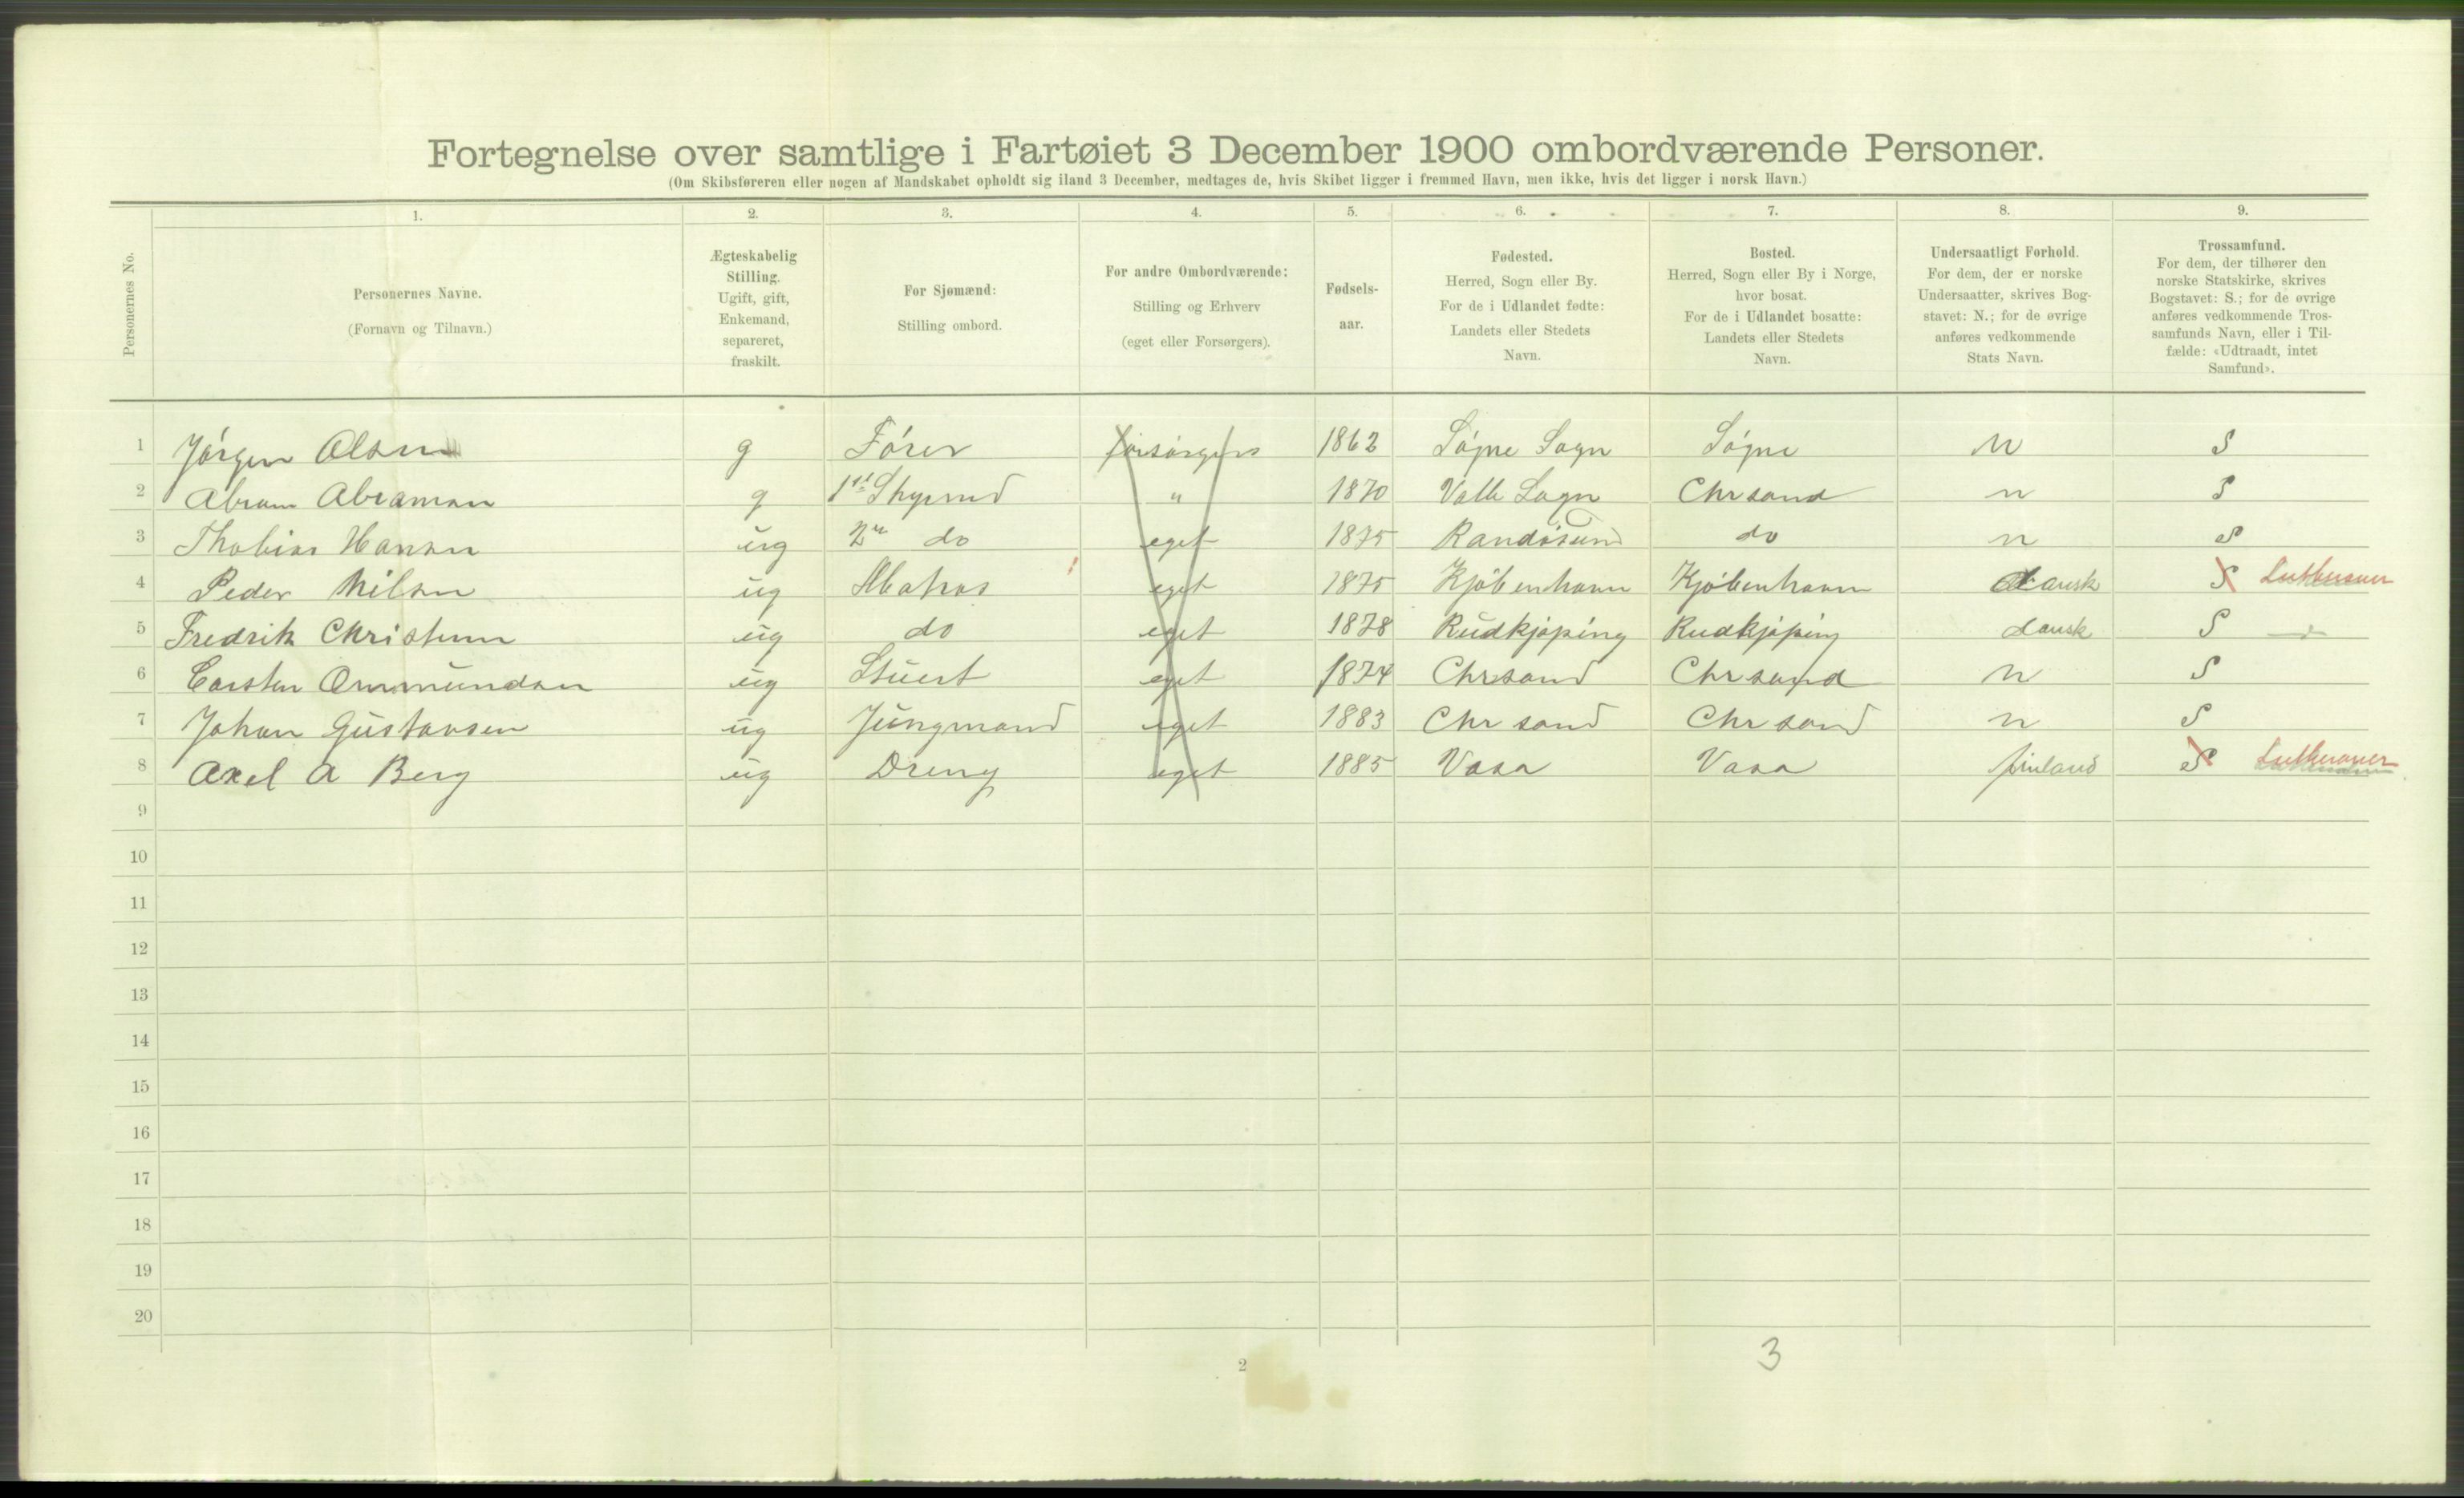 Fortegnelse over samtlige i Fartøiet 3 December 1900 ombordværende Personer.
(Om Skibsføreren eller nogen af Mandskabet opholdt sig iland 3 December, medtages de, hvis Skibet ligger i fremmed Havn, men ikke, hvis det ligger i norsk Havn.)
Personernes No.
1. 2. 3. 4. 5. 6. 7. 8. 9.
Personernes Navne.
(Fornavn og Tilnavn.)
Ægteskabelig
Stilling.
Ugift, gift,
Enkemand,
separeret,
fraskilt.
For Sjømænd:
Stilling ombord.
For andre Ombordværende:
Stilling og Erhverv
(eget eller Forsørgers).
Fødsels-
aar.
Fødested.
Herred, Sogn eller By.
For de i Udlandet fødte:
Landets eller Stedets
Navn.
Bosted.
Herred, Sogn eller By i Norge,
hvor bosat.
For de i Udlandet bosatte:
Landets eller Stedets
Navn.
Undersaatligt Forhold.
For dem, der er norske
Undersaatter, skrives Bog-
stavet: N.; for de øvrige
anføres vedkommende
Stats Navn.
Trossamfund.
For dem, der tilhører den
norske Statskirke, skrives
Bogstavet: S.; for de øvrige
anføres vedkommende Tros-
samfunds Navn, eller i Til-
fælde: «Udtraadt, intet
Samfund».
1 Jórgen Olsen g Fórer forsórgers 1862 Sógne Sogn Sógne N S
2 Abram Abramsen g 1st Styrmd " 1870 Valle Sogn Chrsand n S
3 Thobias Hansen ug 2n do eget 1875 Randósund do n S
4 Peder Nilsen ug Matros eget 1875 Kjóbenhavn Kjóbenhavn dansk S Lutheraner
5 Fredrik Christensen ug do eget 1878 Rudkjóping Rudkjóping dansk S
6 Carsten Ommundsen ug Stuert eget 1874 Chrsand Chrsand n S
7 Johan Gustavsen ug Jungmand eget 1883 Chrsand Chrsand n S
8 Axel A Berg ug Dreng eget 1885 Vasa Vasa finland S Lutheraner
9
10
11
12
13
14
15
16
17
18
19
20
2
3